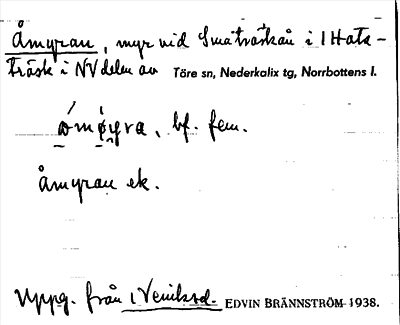 Åmyran, myr vid Småträskån i 1 Hata-
träsk i NV delen av Töre sn, Nederkalix tg, Norrbottens l.
bf. fem.
Åmyran ek.
Uppg. från EDVIN BRÄNNSTRÖM 1938.